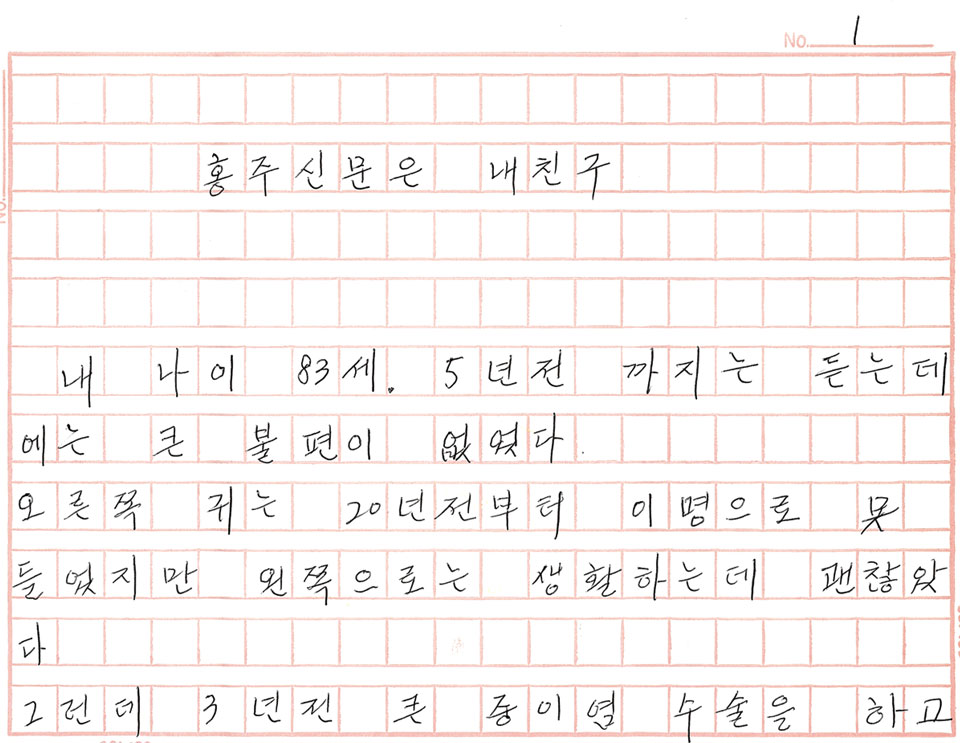 No. 1
홍주신문은 내친구
내 나이 83세. 5년전 까지는 듣는데
에는 큰 불편이 없였다.
오른쪽 귀는 20년전부터 이명으로 못
들었지만 왼쪽으로는 생활하는데 괜찮았
다
그런데 3년전 큰 중이염 수술을 하고